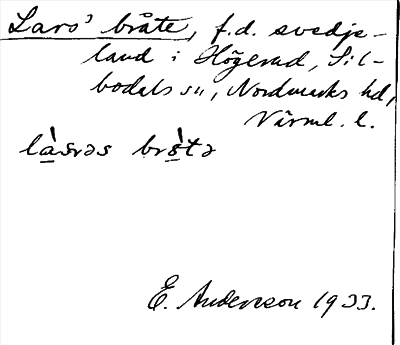 Lars' bråte, f.d. svedje-
land i Högerud, Sil-
bodals sn, Nordmarks hd,
Värml. l.
E. Andersson 1933.